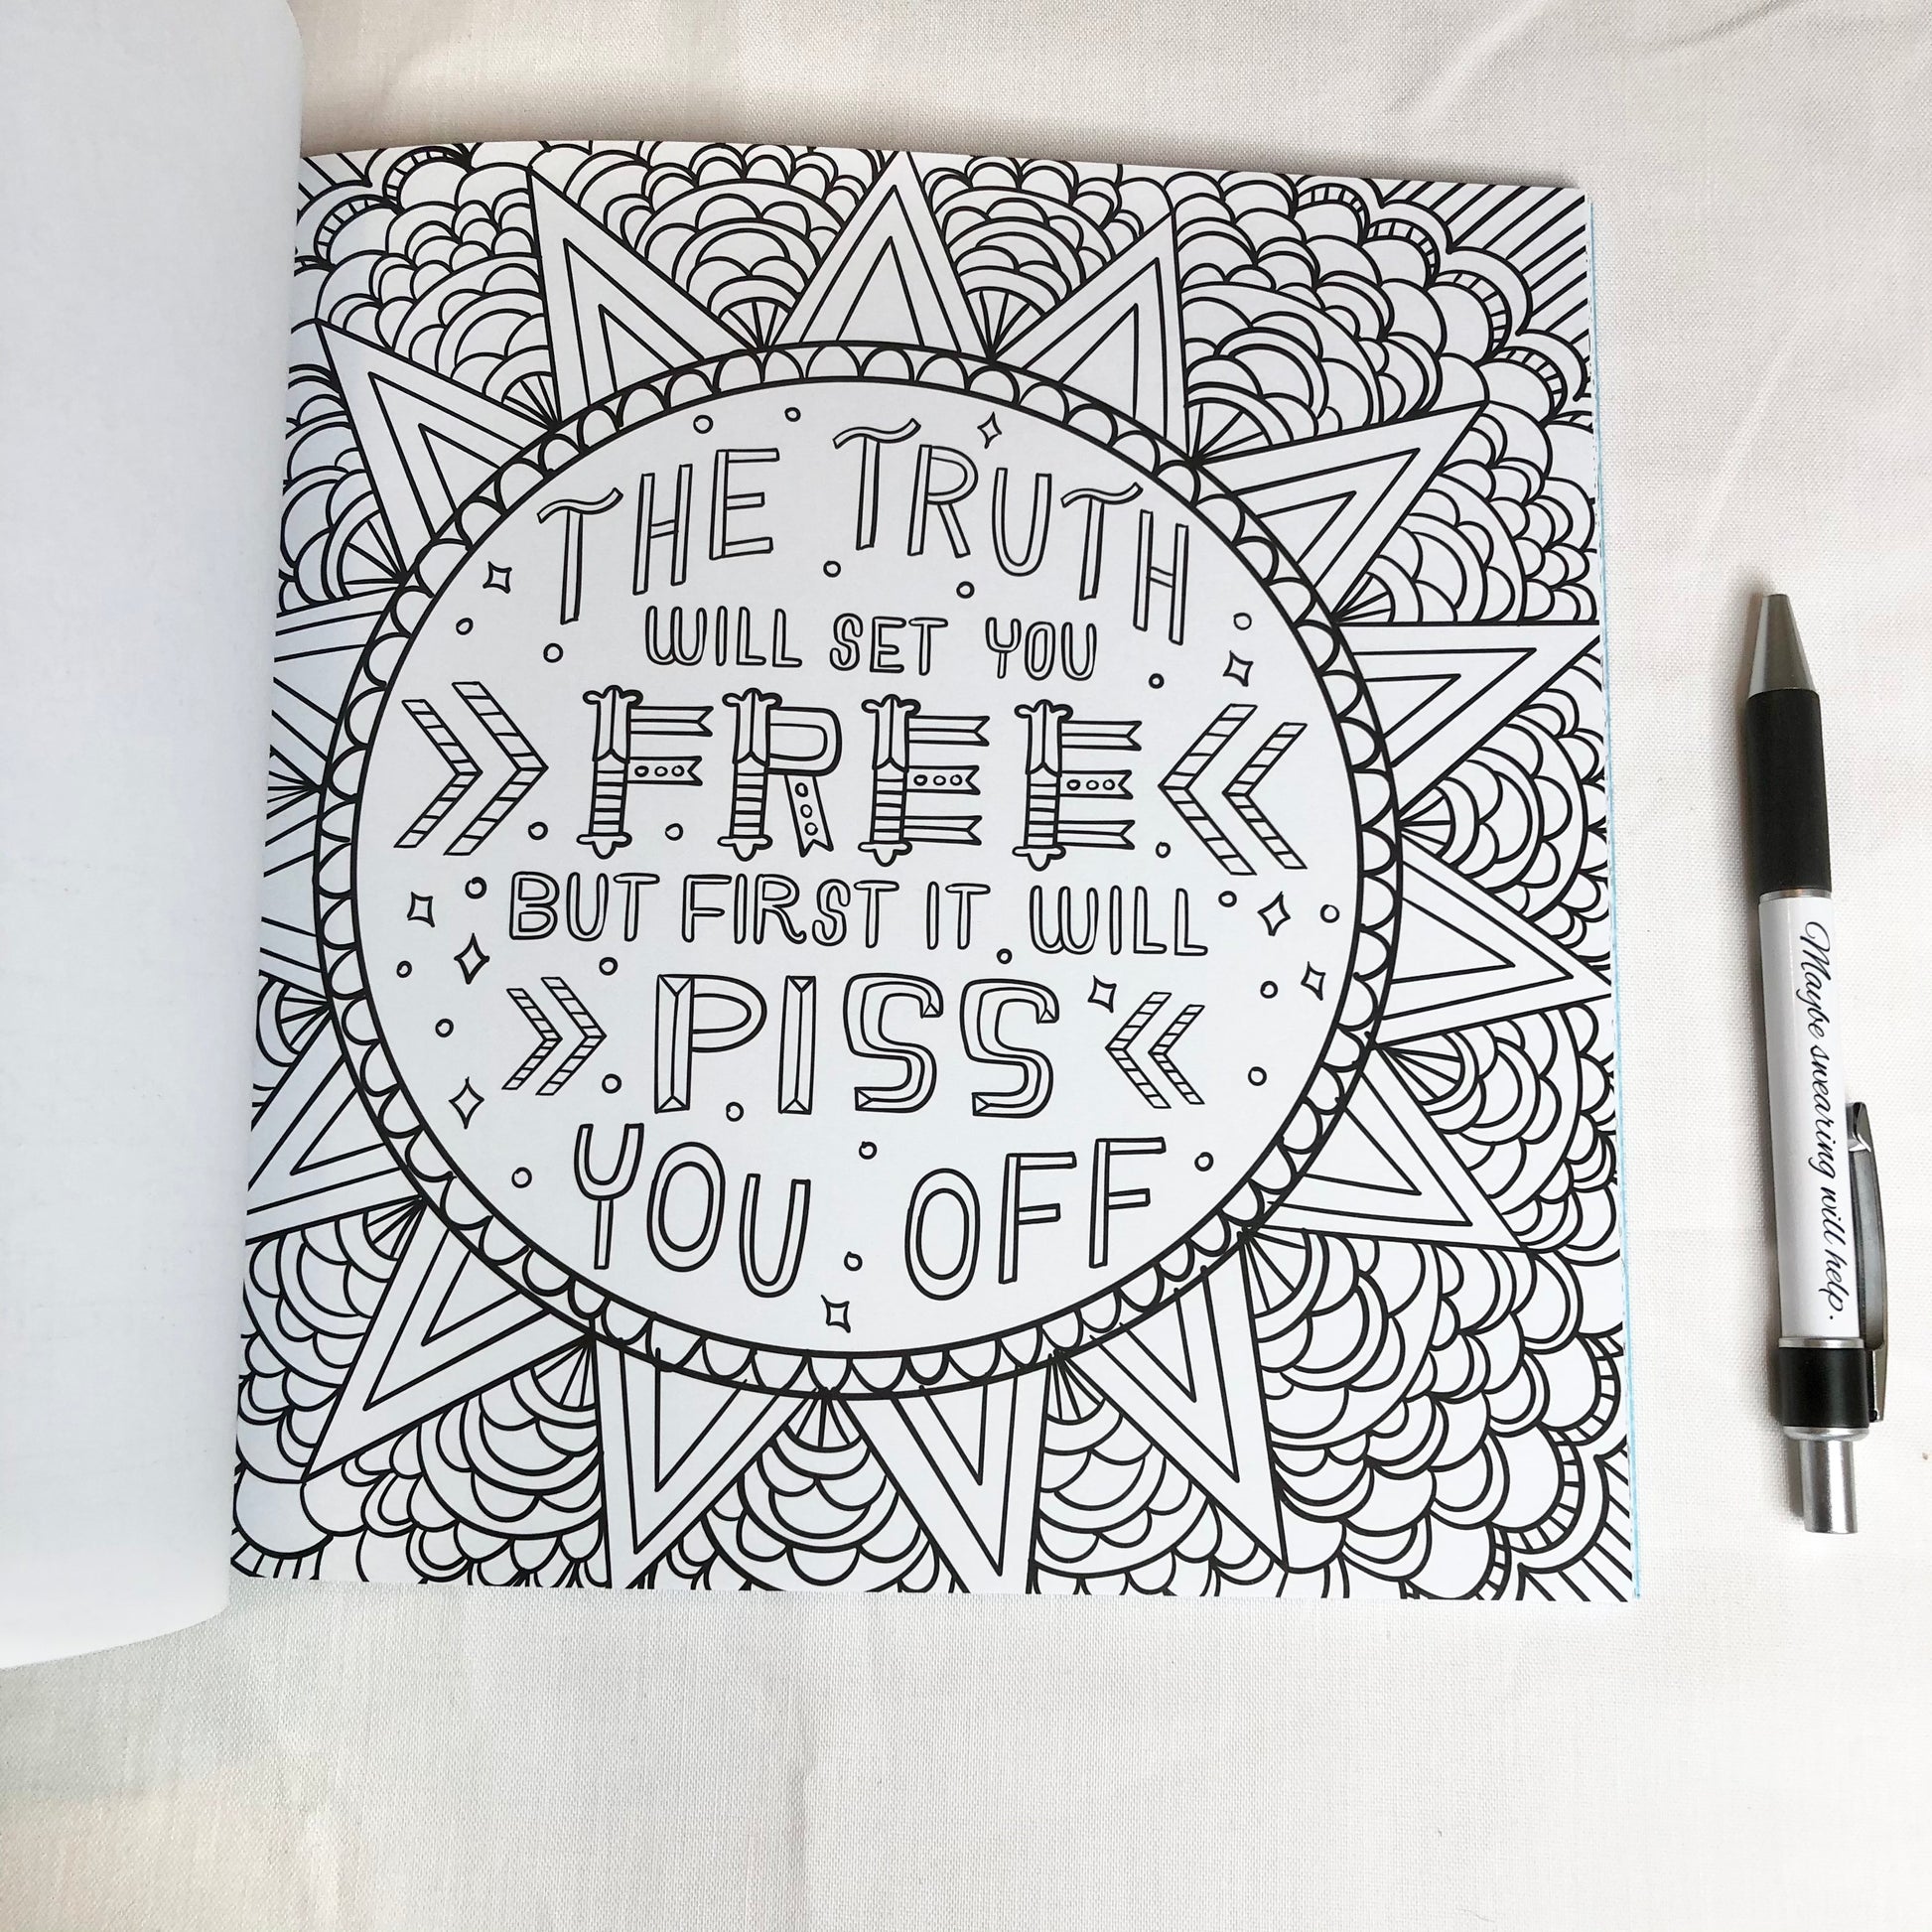 THE TRUTH
WILL SET YOU
FREE
BUT FIRST IT WILL
PISS
YOU OFF
Maybe swearing will help.